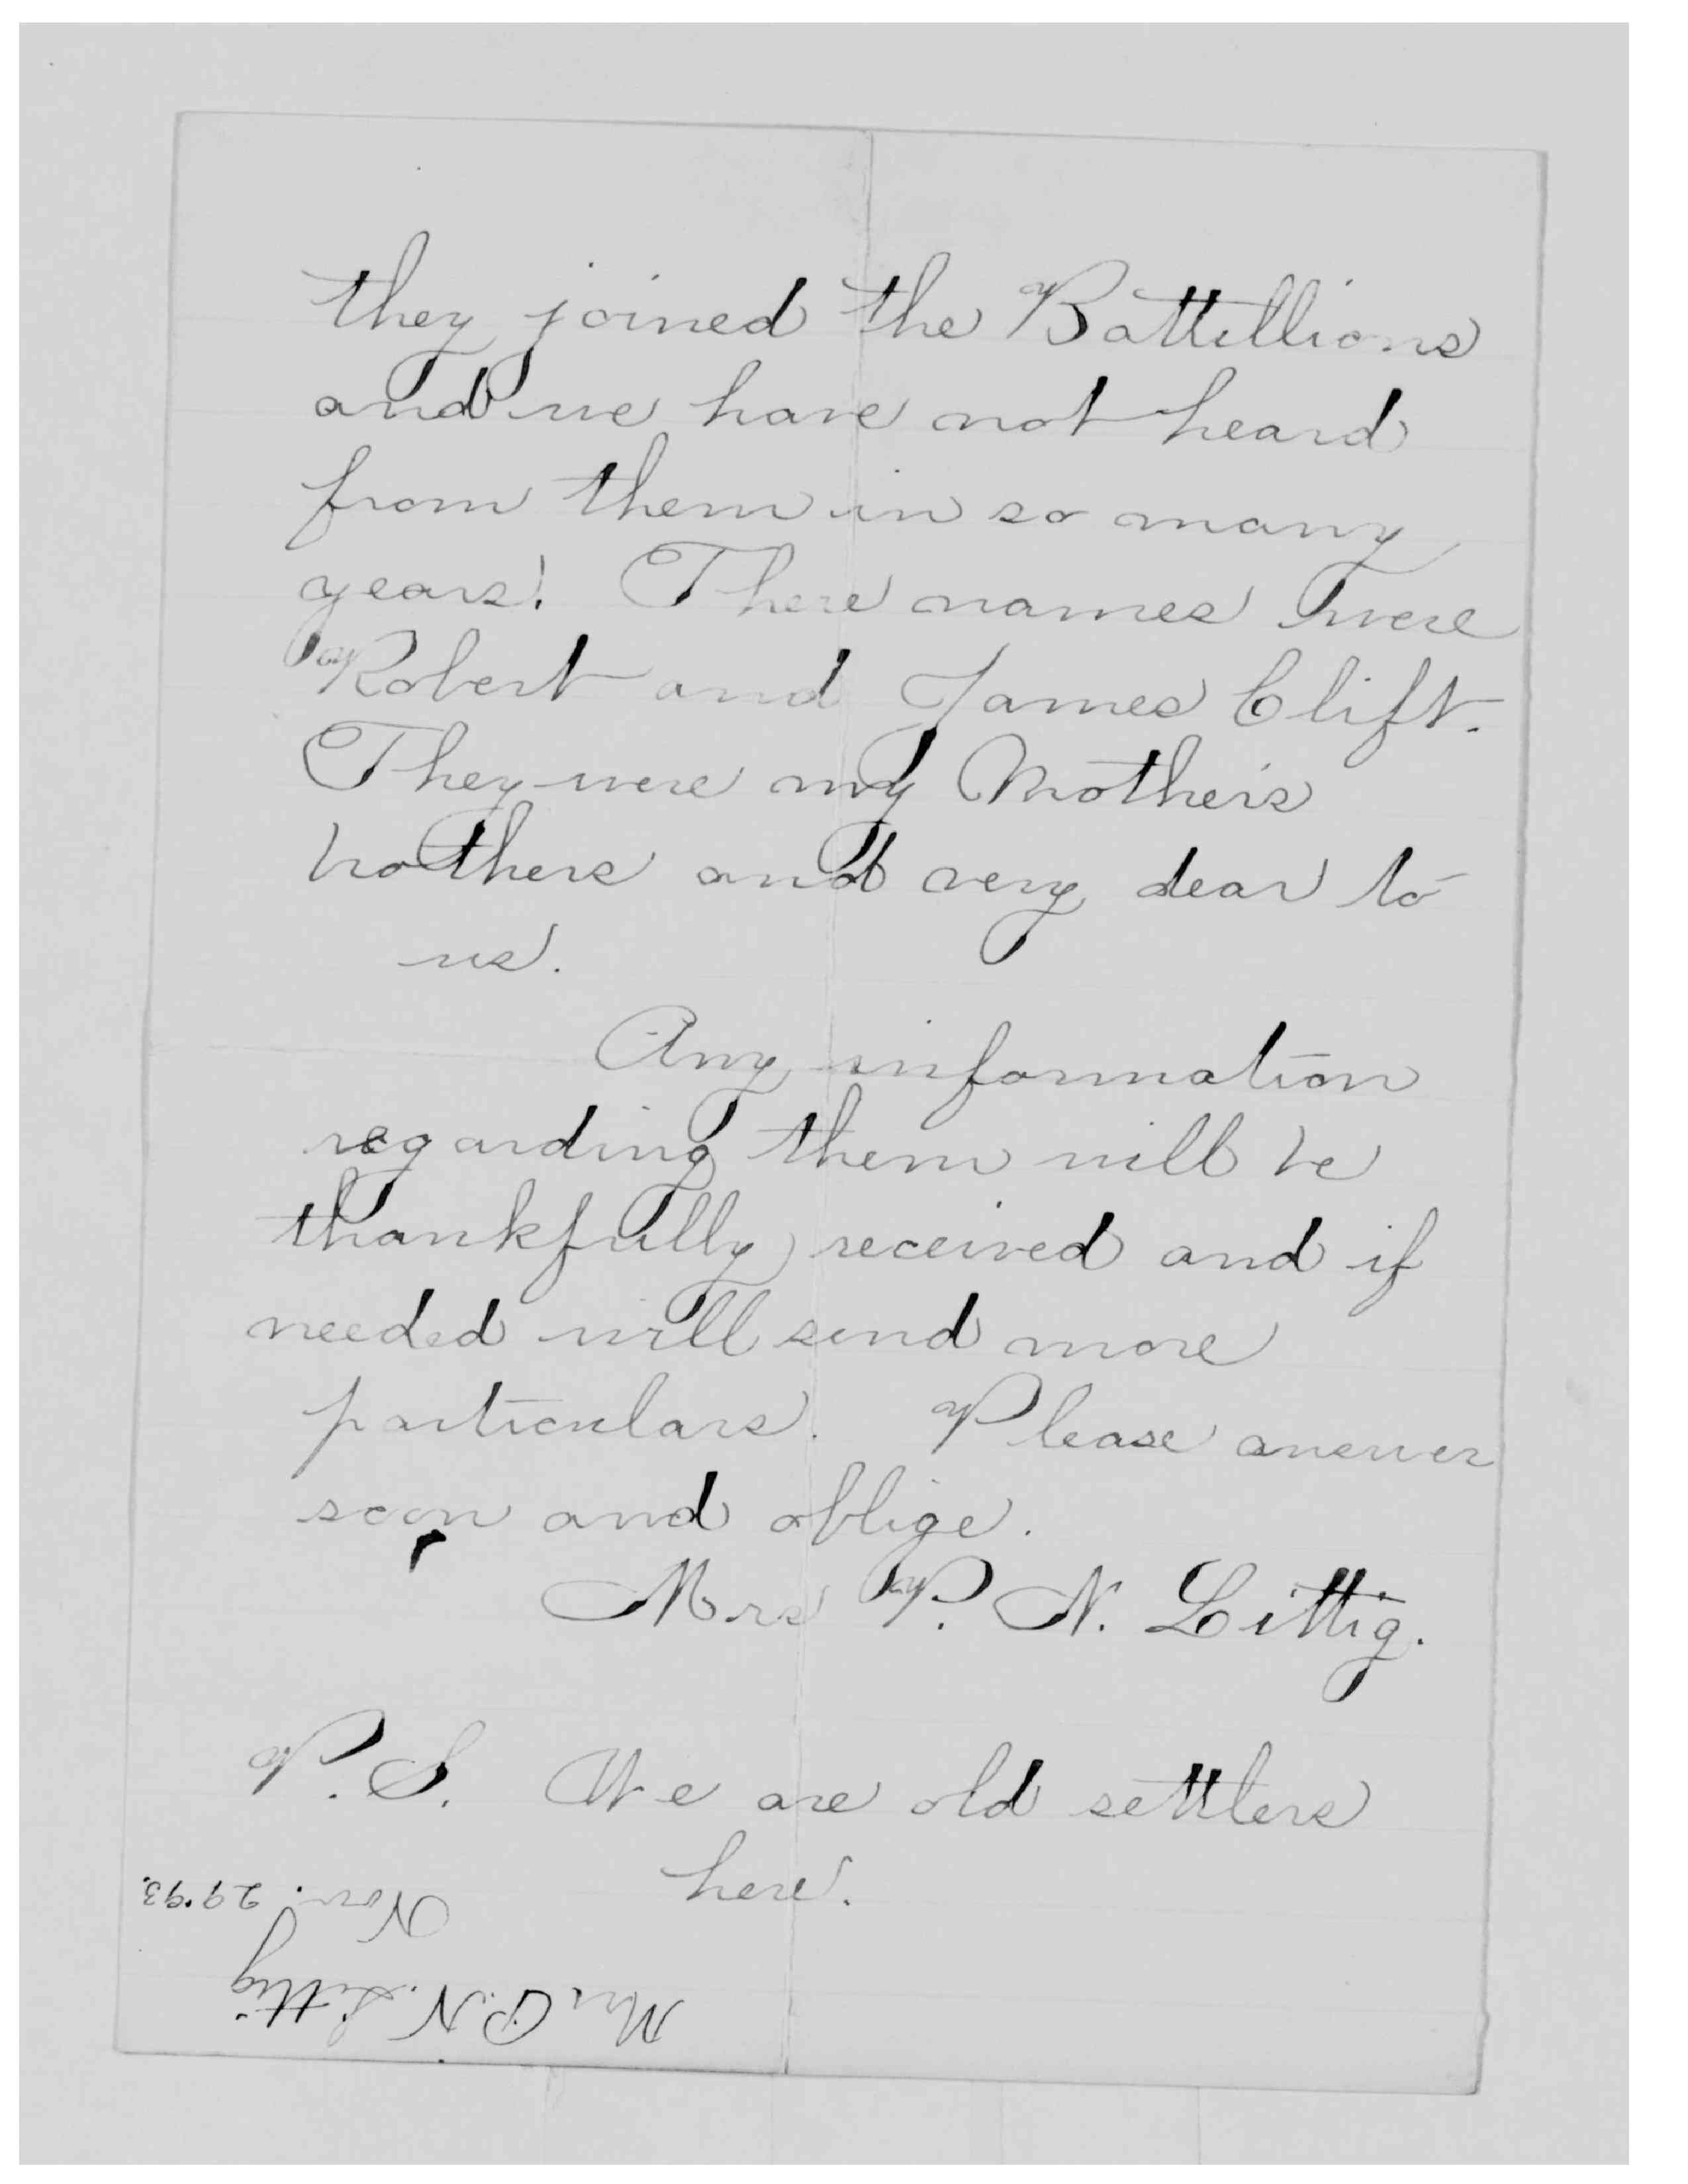 they joined the Battillions
and we have not heard
from them in so many
years! There names were
Robert and James Clift.
They were my Mother's
brothers and very dear to
us.
Any information
regarding them will be
thankfully received and if
needed will send more
particulars. Please answer
soon and oblige.
Mrs P. N. Littig.
P.S. We are old settlers
here.
Mrs P. N. Littig
Nov. 29.93.